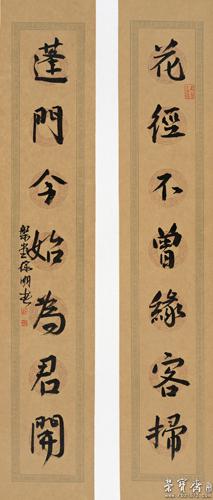 花徑不曾緣客掃
蓬門今始為君開
榮寶斋